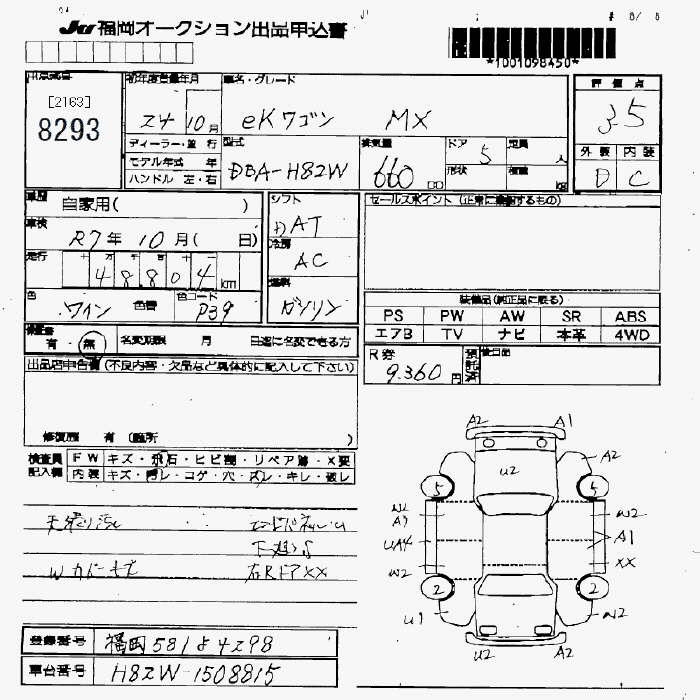 JU 福岡オークション出品申込書
*1001098450*
出品番号
[2163]
8293
初年度登録年月
24 10月
車名・グレード
eKワゴン MX
評価点
3.5
ディーラー・並行
モデル年式 年
ハンドル 左・右
型式
DBA-H82W
排気量
660 cc
ドア
5
形状
定員
人
積載
kg
外装 内装
D C
車歴
自家用( )
シフト
DAT
セールスポイント (正常に機能するもの)
車検
R7年 10月( 日)
冷房
AC
走行
十 万 千 百 十 一
4 8 8 0 4 km
燃料
ガソリン
色
ワイン
色替
色コード
P39
装備品(純正品に限る)
PS PW AW SR ABS
エアB TV ナビ 本革 4WD
有・無
名変期限 月 日迄に名変できる方
R券
9,360円
預託済
後日品
出品店申告欄 (不良内容・欠品など具体的に記入して下さい)
修復歴 有 (箇所 )
検査員記入欄
FW キズ・飛石・ヒビ割・リペア跡・X要
内装 キズ・汚レ・コゲ・穴・スレ・キレ・破レ
下廻りS
右RドアXX
A2 A1
U2
A2
5 5
W2
A1
W2
UA4
A1
W2
XX
2 2
U1
W2
U2 A2
登録番号 福岡581よ4298
車台番号 H82W-1508815